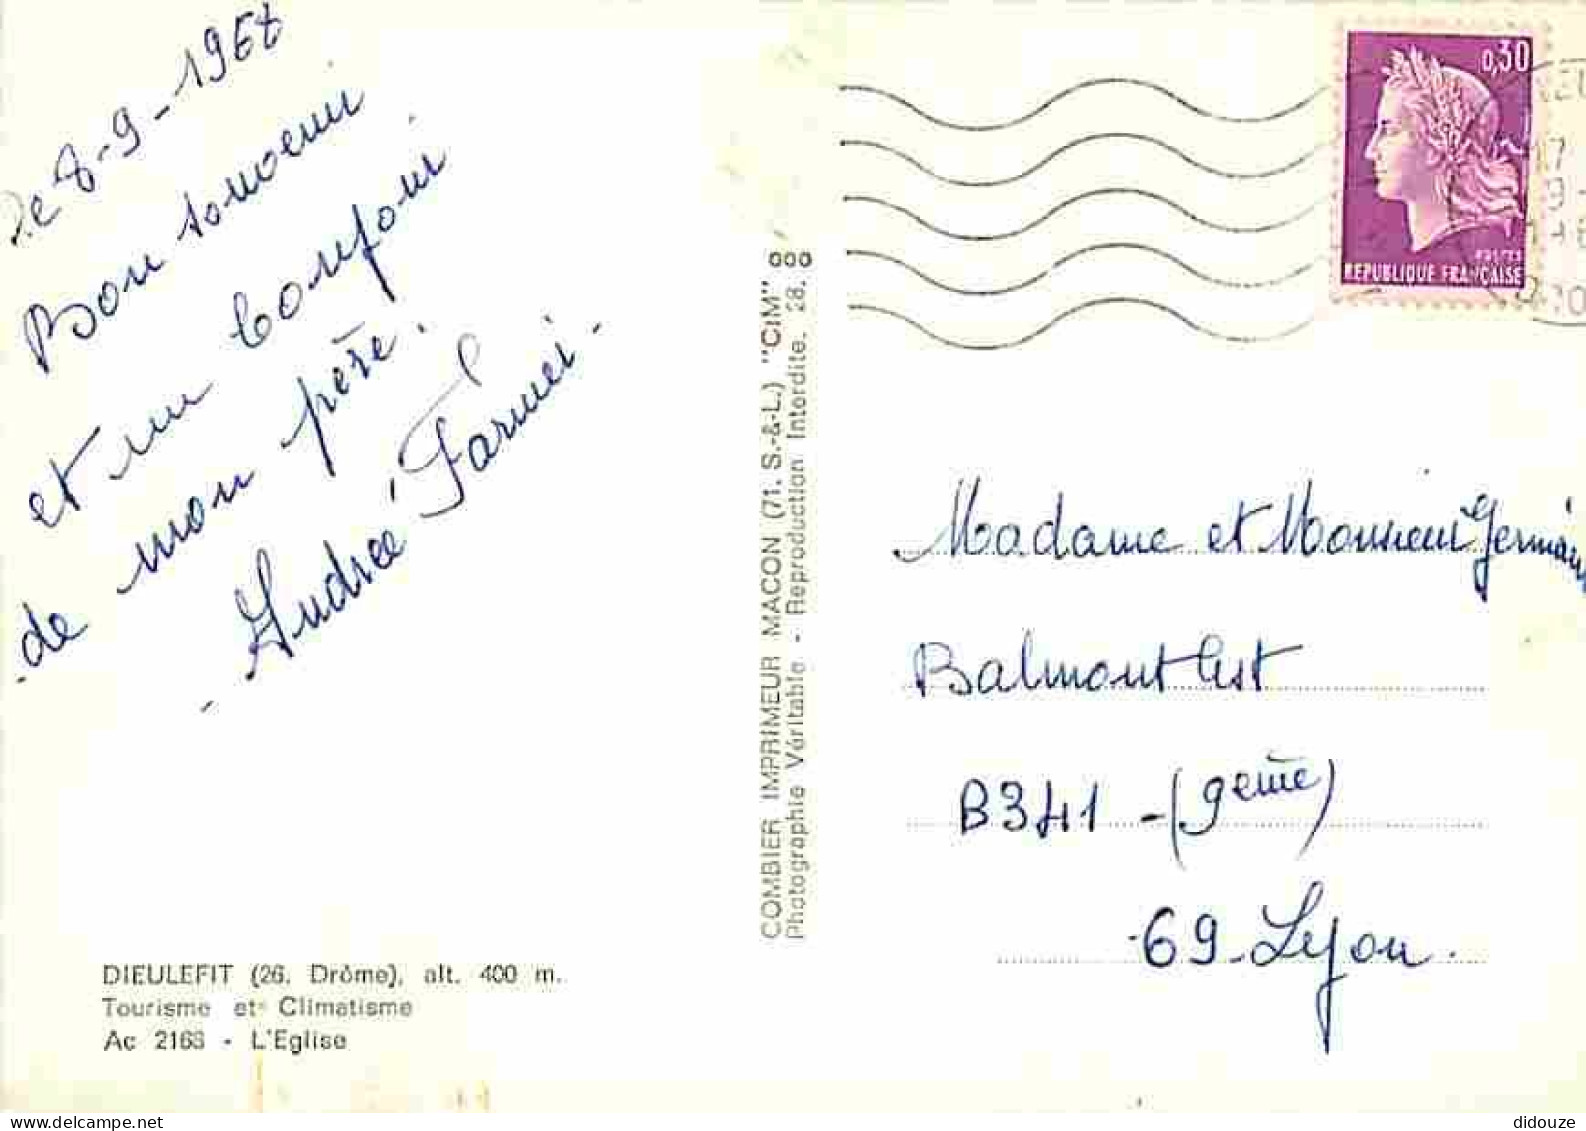 Le 8-9-1967
Bon souvenir
et un bonjour
de mon père.
- Andrée Farnier -
DIEULEFIT (26. Drôme), alt. 400 m.
Tourisme et Climatisme
Ac 2168 - L'Eglise
COMBIER IMPRIMEUR MACON (71. S.-&-L.) "CIM"
Photographie Véritable - Reproduction Interdite. 28.
0,30
POSTES
REPUBLIQUE FRANÇAISE
17
Madame et Monsieur Germain
Balmont Est
B341 - (9ème)
69 - Lyon.
didouze